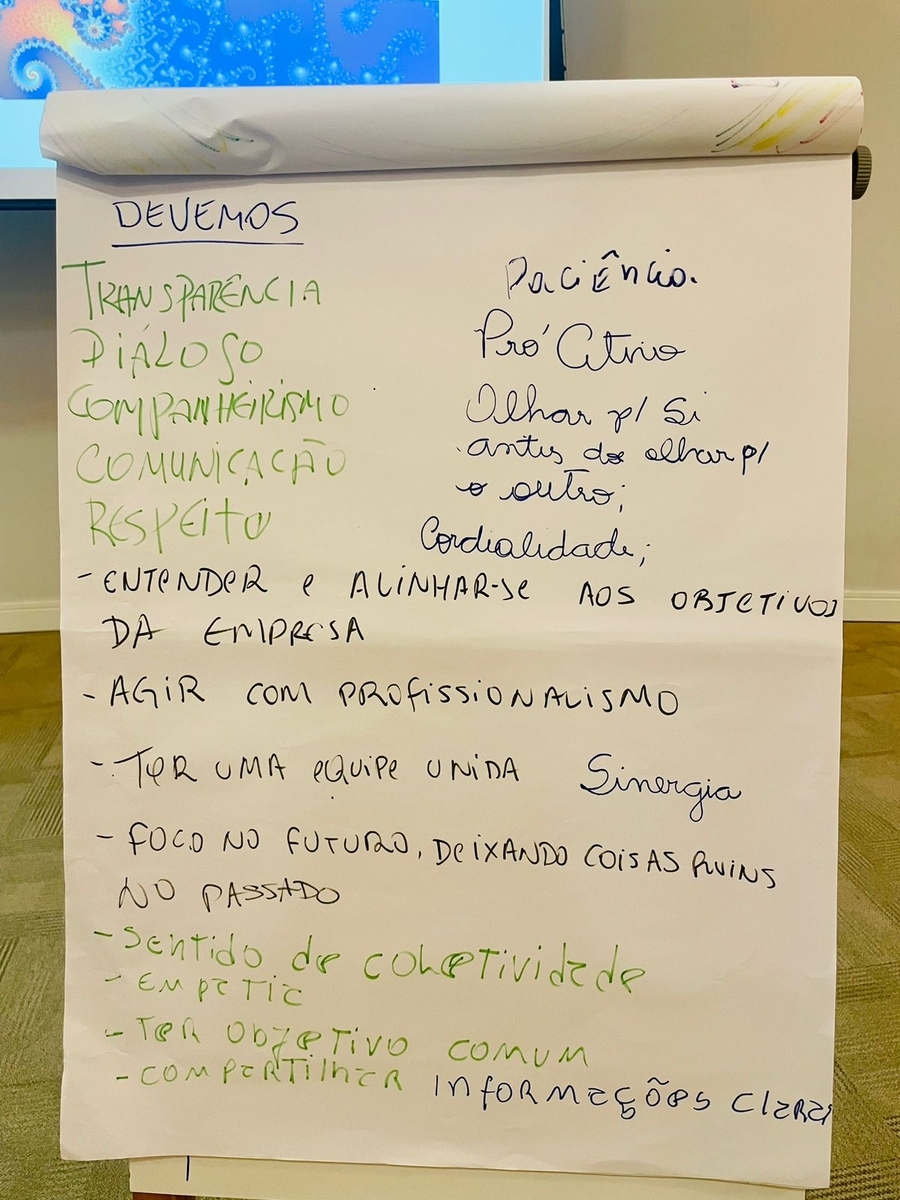 DEVEMOS
TRANSPARÊNCIA
DIÁLOGO
COMPANHEIRISMO
COMUNICAÇÃO
RESPEITO
Paciência.
Pró Ativo
Olhar p/ Si
antes de olhar p/
o outro;
Cordialidade;
- ENTENDER e ALINHAR-SE AOS OBJETIVOS
DA EMPRESA
- AGIR COM PROFISSIONALISMO
- TER UMA EQUIPE UNIDA Sinergia
- FOCO NO FUTURO, DEIXANDO COISAS RUINS
NO PASSADO
- SENTIDO de COLETIVIDADE
- EMPATIA
- TER OBJETIVO COMUM
- COMPARTILHAR INFORMAÇÕES CLARAS